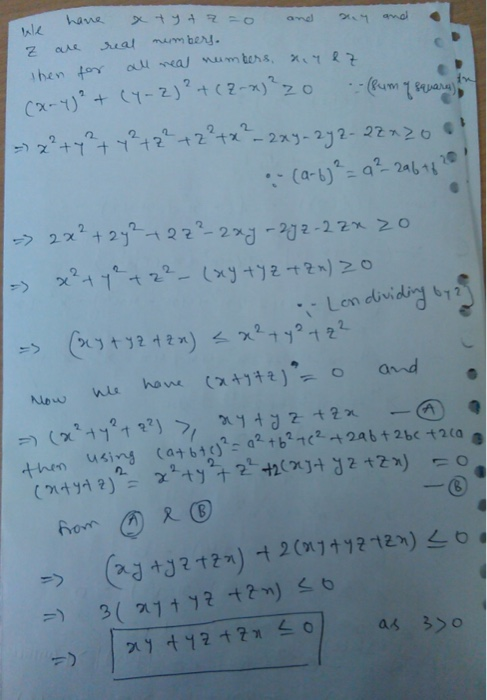 We have x+y+z=0 and x,y and
z are real numbers.
Then for all real numbers, x,y & z
(x-y)² + (y-z)² + (z-x)² ≥ 0 ∵ (sum of squares)
⇒ x²+y²+y²+z²+z²+x²-2xy-2yz-2zx ≥ 0
∵ (a-b)² = a²-2ab+b²
⇒ 2x²+2y²+2z²-2xy-2yz-2zx ≥ 0
⇒ x²+y²+z²-(xy+yz+zx) ≥ 0
∵ [on dividing by 2]
⇒ (xy+yz+zx) ≤ x²+y²+z²
Now we have (x+y+z)² = 0 and
⇒ (x²+y²+z²) ≥, xy+yz+zx —Ⓐ
then using (a+b+c)² = a²+b²+c²+2ab+2bc+2ca
(x+y+z)² = x²+y²+z²+2(xy+yz+zx) = 0
—Ⓑ
from Ⓐ & Ⓑ
⇒ (xy+yz+zx) + 2(xy+yz+zx) ≤ 0
⇒ 3(xy+yz+zx) ≤ 0
⇒ xy+yz+zx ≤ 0 as 3>0